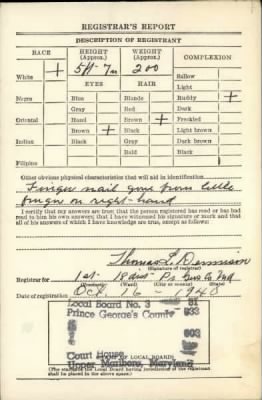 REGISTRAR'S REPORT
DESCRIPTION OF REGISTRANT
RACE HEIGHT (Approx.) WEIGHT (Approx.) COMPLEXION
White + 5ft-7in 200 Sallow
EYES HAIR Light
Negro Blue Blonde Ruddy +
Gray Red Dark
Oriental Hazel Brown + Freckled
Brown + Black Light brown
Indian Black Gray Dark brown
Bald Black
Filipino
Other obvious physical characteristics that will aid in identification
Finger nail gone from little
finger on right-hand
I certify that my answers are true; that the person registered has read or has had
read to him his own answers; that I have witnessed his signature or mark and that
all of his answers of which I have knowledge are true, except as follows:
(Signature of registrar)
Registrar for 1st- 18 dist- Pr. Geo. Co. Md
(Precinct) (Ward) (City or county) (State)
Date of registration Oct. 16 - 1940
Local Board No. 3 81
Prince George's County 033
003
Court House
Upper Marlboro, Maryland
(STAMP OF LOCAL BOARD)
(The stamp of the Local Board having jurisdiction of the registrant
shall be placed in the above space.)